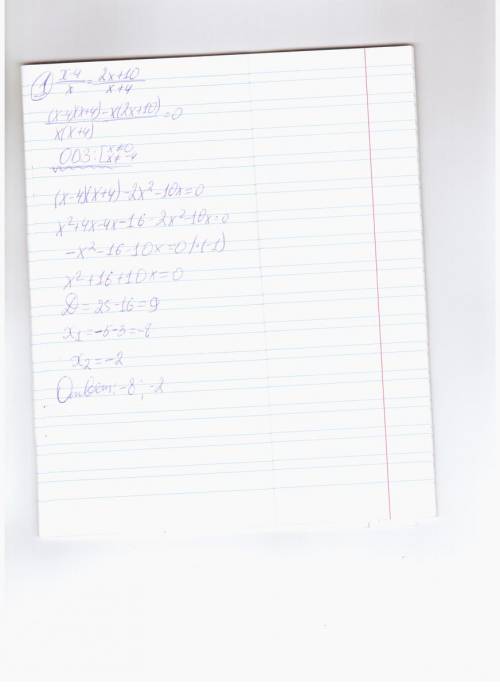 1) x-4/x = 2x+10/x+4
(x-4)(x+4)-x(2x+10)/x(x+4) =0
ООЗ: [x≠0 x≠-4
(x-4)(x+4)-2x²-10x=0
x²+4x-4x-16-2x²-10x=0
-x²-16-10x=0 |·(-1)
x²+16+10x=0
D=25-16=9
x₁=-5-3=-8
x₂=-2
Ответ: -8; -2